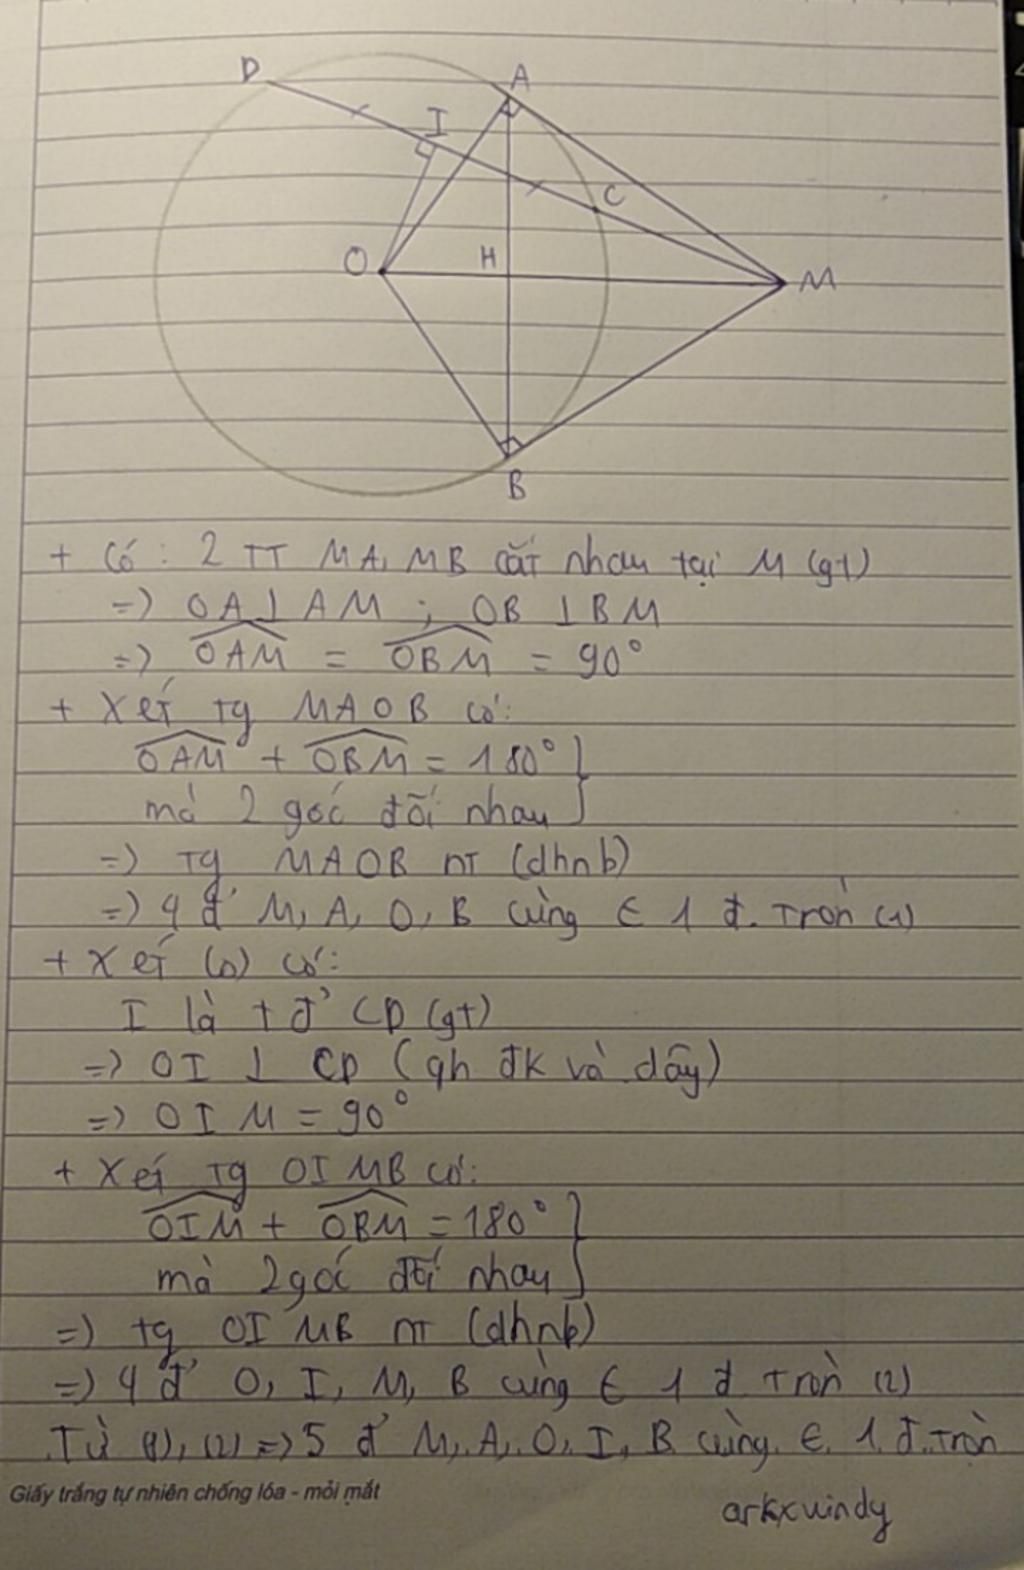 D
A
I
C
O
H
M
B
+ Có : 2 TT MA, MB cắt nhau tại M (gt)
=) OA ⊥ AM ; OB ⊥ BM
=) OAM = OBM = 90°
+ Xét tg MAOB có:
OAM + OBM = 180° }
mà 2 góc đối nhau
=) tg MAOB nt (dhnb)
=) 4 đ' M, A, O, B cùng ∈ 1 đ. tròn (1)
+ Xét (O) có:
I là t đ' CD (gt)
=) OI ⊥ CD (qh đk và dây)
=) OIM = 90°
+ Xét tg OIMB có:
OIM + OBM = 180° }
mà 2 góc đối nhau
=) tg OIMB nt (dhnb)
=) 4 đ' O, I, M, B cùng ∈ 1 đ tròn (2)
Từ (1), (2) =) 5 đ' M, A, O, I, B cùng ∈ 1 đ. tròn
Giấy trắng tự nhiên chống lóa - mỏi mắt
arkxwindy